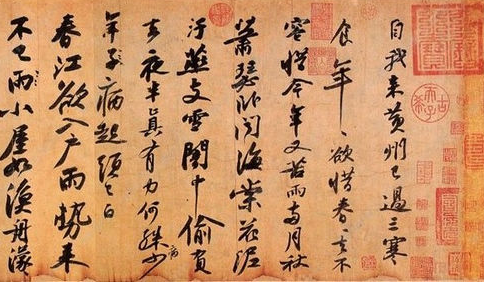 自我来黄州已過三寒
食年〻欲惜春〻去不
容惜今年又苦雨兩月秋
蕭瑟卧聞海棠花泥
汙燕支雪闇中偷負
去夜半真有力何殊病少
年子病起頭已白
春江欲入户雨勢来
不已雨小屋如漁舟濛